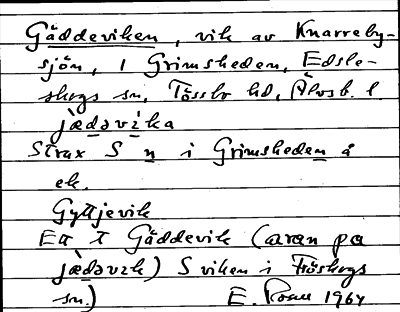 Gäddeviken, vik av Knarreby-
sjön, i Grimsheden, Edsle-
skogs sn, Tössbo hd, Älvsb. l.
jæ̀dəvi̇ka
Strax S n i Grimsheden å
ek.
Gyltjevik
Ett t Gäddevik (aran pa
jæ̀dəvɩk) S viken i Fröskogs
sn.) E. Roau 1964